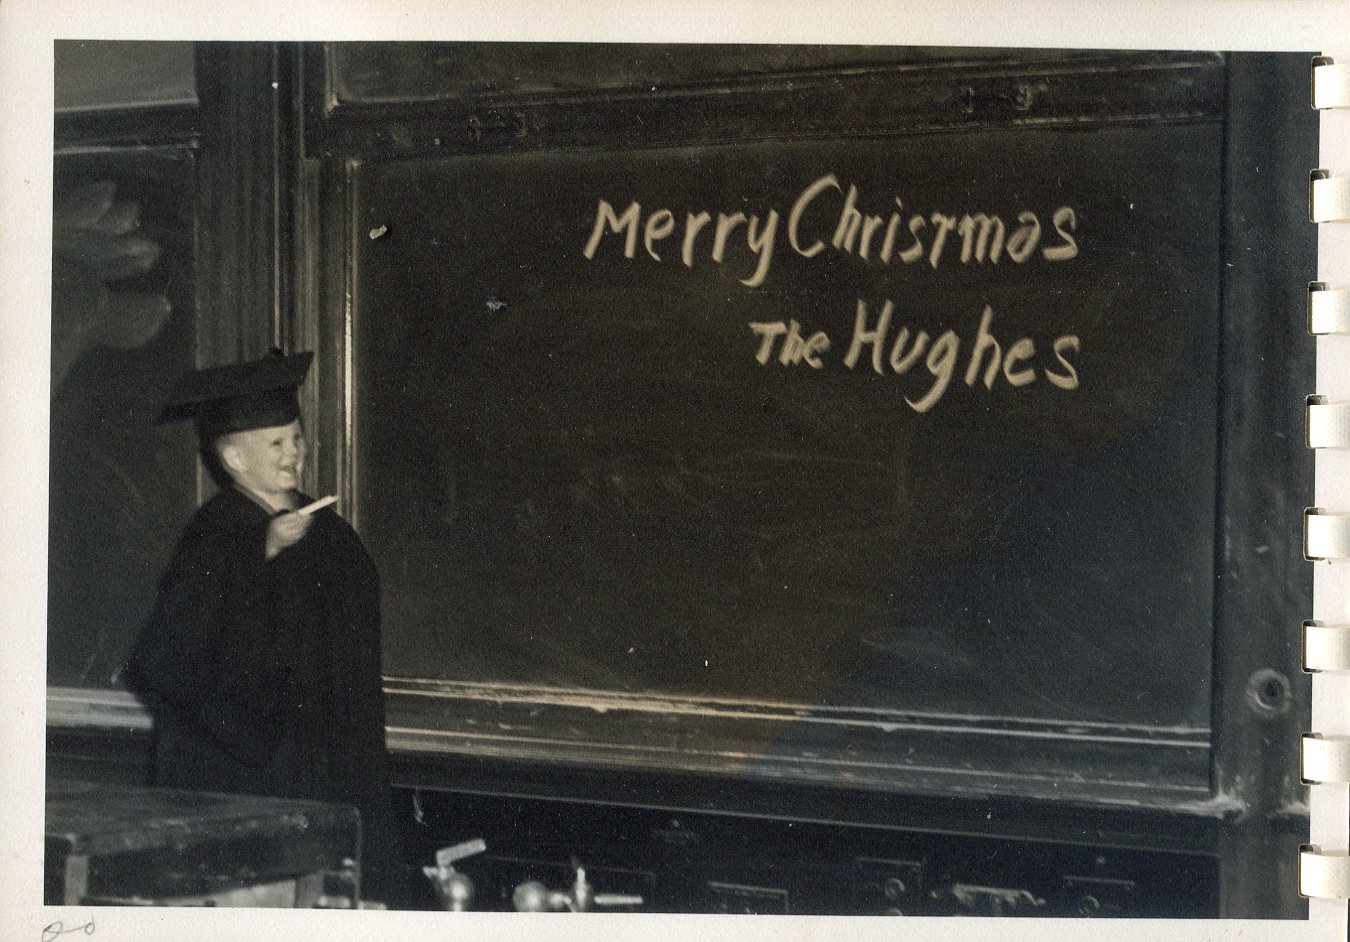 Merry Christmas
The Hughes